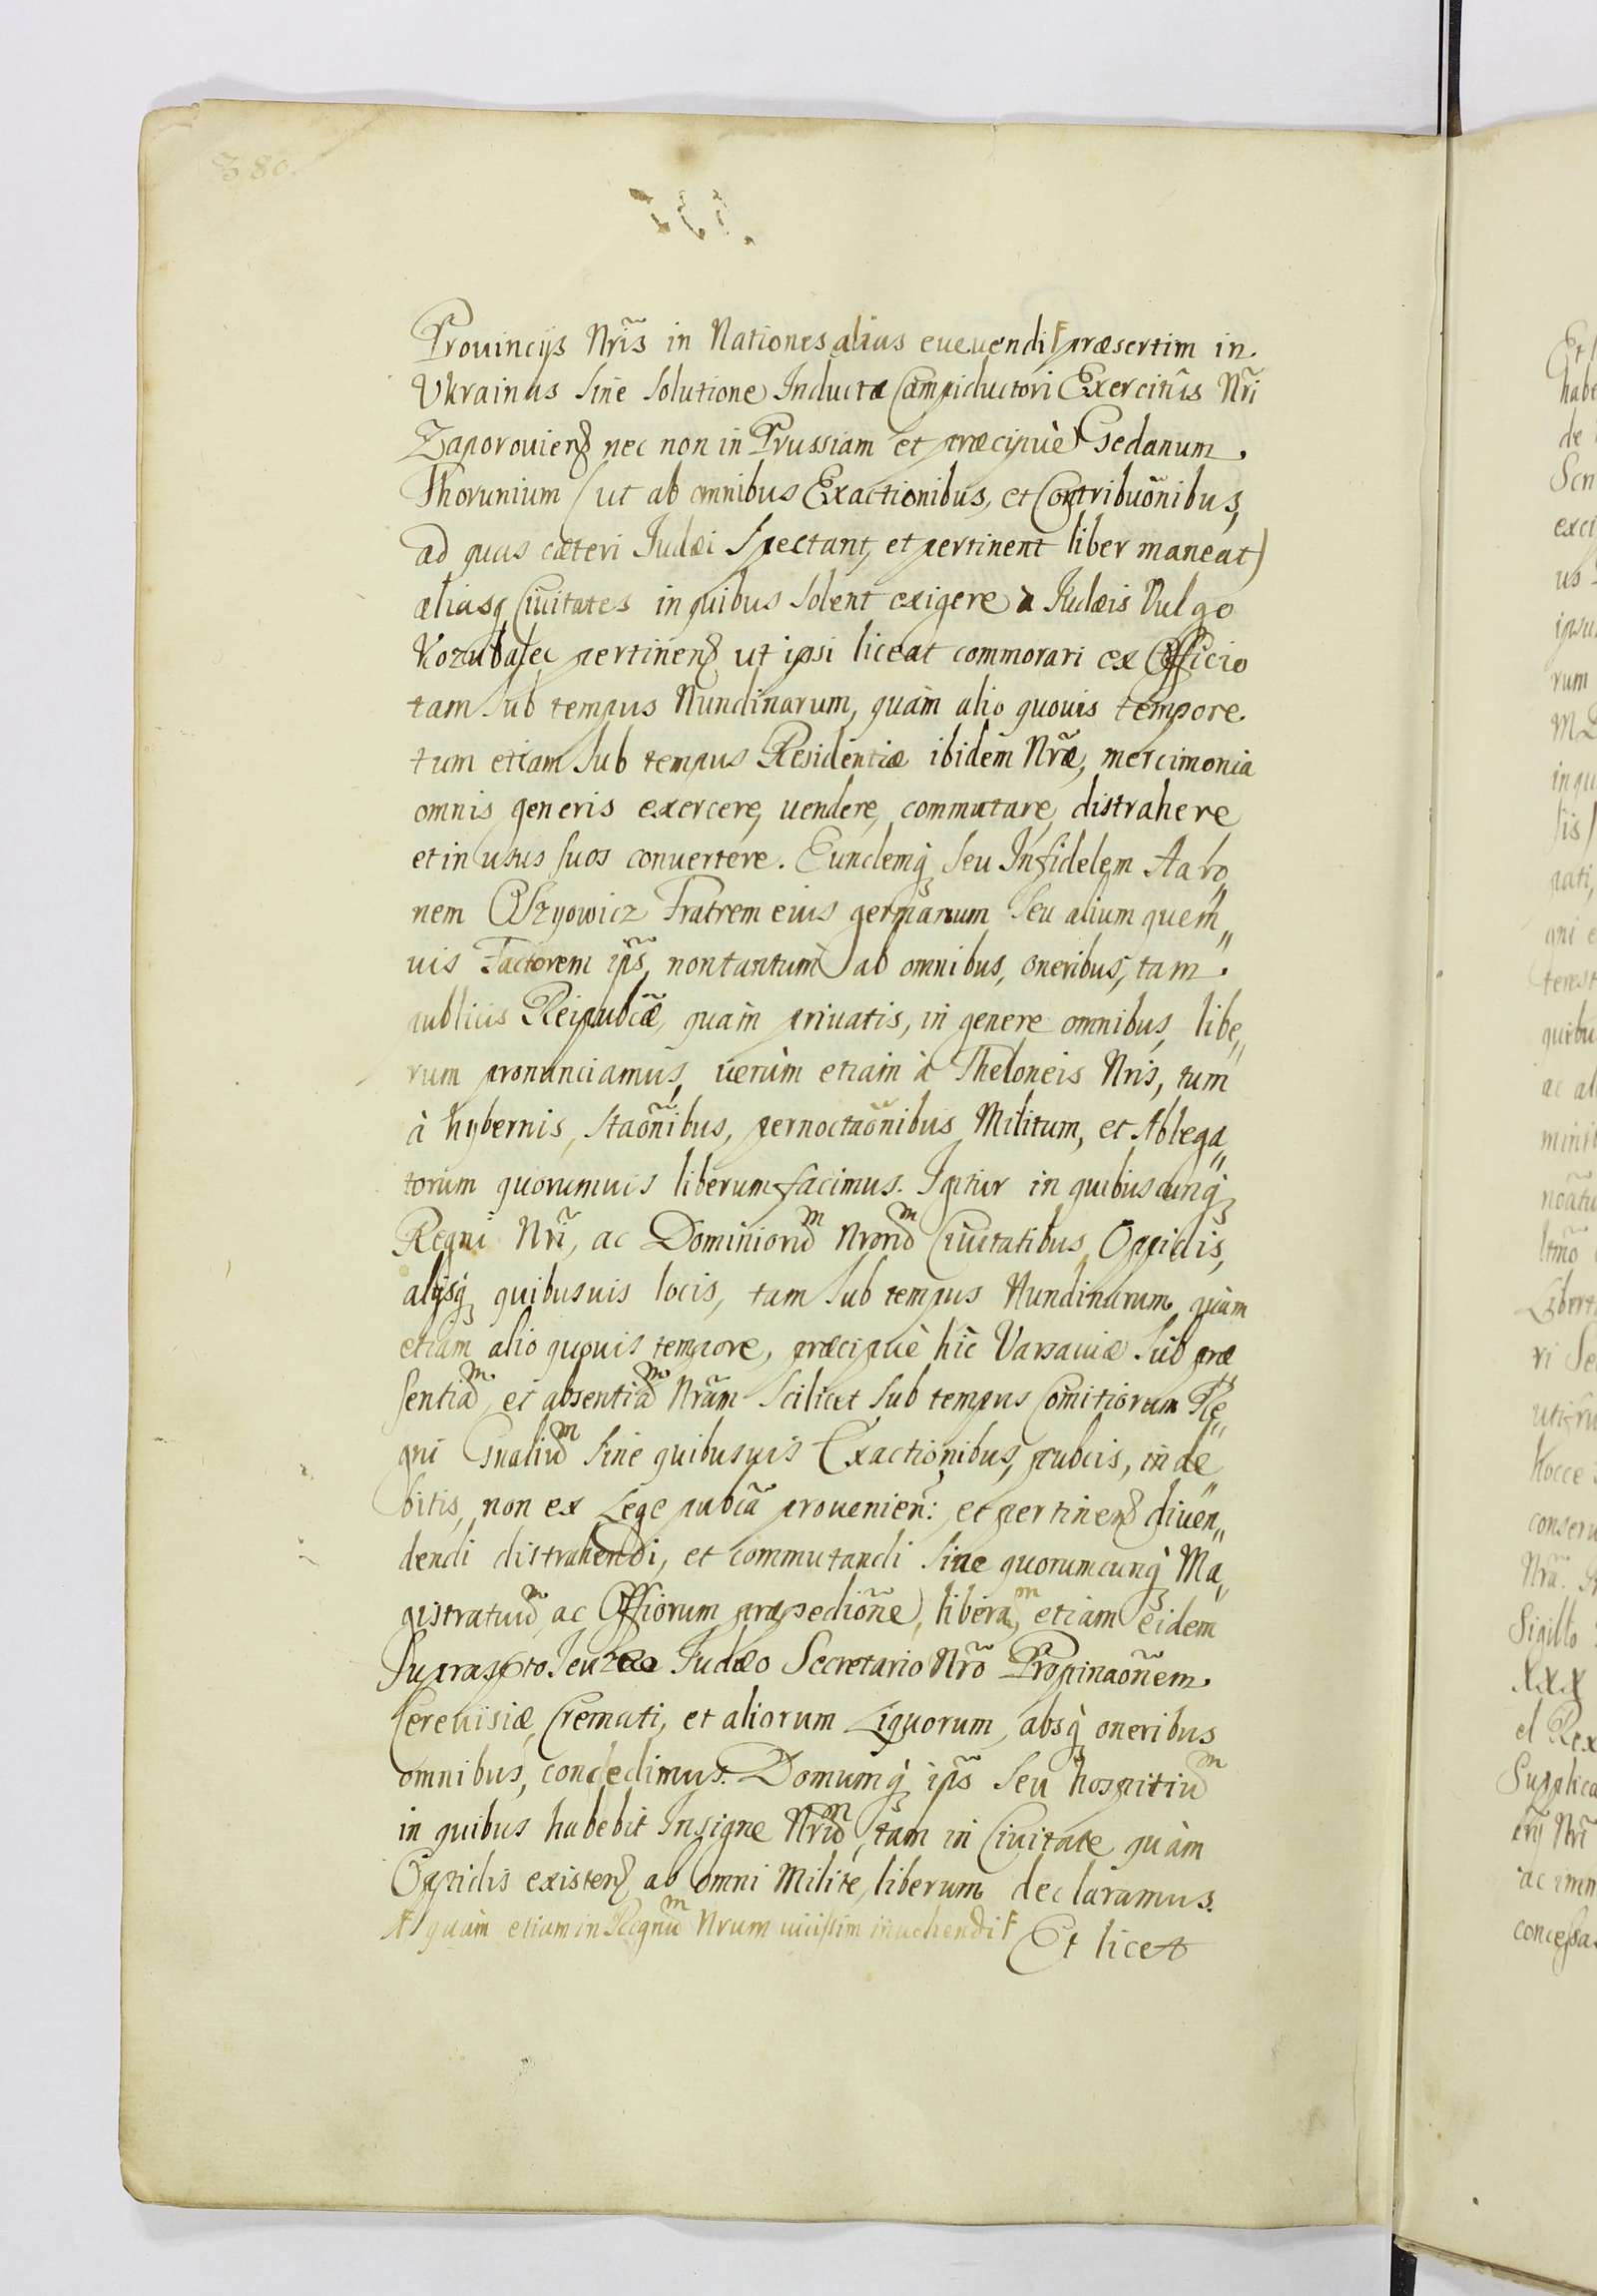 380.
Prouincijs Nr̃is in Nationes alias eueuendi ꟻ præsertim in
Ukrainas sine solutione Inductæ Campiductori Exercitũs Nr̃i
Zaporouien̄ nec non in Prussiam et præcipuè Gedanum
Thorunium (ut ab omnibus Exactionibus, et Contribuõnibus,
ad quas cæteri Iudæi spectant, et pertinent liber maneat)
aliasq Ciuitates in quibus solent exigere à Iudæis Vulgo
Kozubalec pertinen̄ ut ipsi liceat commorari ex Officio
tam sub tempus Nundinarum, quàm alio quouis tempore
tum etiam sub tempus Residentiæ ibidem Nr̃æ, mercimonia
omnis generis exercere, uendere, commutare, distrahere
et in usus suos conuertere. Eundemq̷ seu Infidelem Aaro„
nem Oszyowicz Fratrem eius germanum seu alium quem„
uis Factorem ip̃s, non tantum ab omnibus, oneribus, tam
publicis Reipubc̃æ, quàm priuatis, in genere omnibus, libe„
rum pronunciamus, uerùm etiam à Theloneis Nris, tum
à hybernis, staõnibus, pernoctaõnibus Militum, et Ablega„
torum quorumuis liberum facimus. Igitur in quibuscunq̷
Regni Nr̃i, ac Dominioruᵐ Nroruᵐ Ciuitatibus, Oppidis,
alijsq̷ quibusuis locis, tam sub tempus Nundinarum, quàm
etiam alio quouis tempore, præcipuè hìc Varsauiæ sub præ
sentiaᵐ, et absentiaᵐ Nr̃am scilicet sub tempus Comitiorum Re„
gni Gnaliuᵐ sine quibusuis Exactionibus, pubcis, inde„
bitis, non ex Lege pubc̃a prouenien: et pertinen̄ diuen„
dendi distrahendi, et commutandi sine quorumcunq̷ Ma„
gistratuuᵐ, ac Offiorum præpediõne, liberaᵐ, etiam eidem
Suprascpto Iudæo Secretario Nr̃o Propinaõnem
Cereuisiæ, Cremati, et aliorum Liquorum, absq̷ oneribus
omnibus, concedimus. Domumq̷ ip̃s seu hospitiuᵐ
in quibus habebit Insigne Nr̃uᵐ, tam in Ciuitate quàm
Oppidis existen̄ ab omni Milite, liberum declaramus.
ꟻ quàm etiam in Regnuᵐ Nrum uicissim inuehendi ꟻ
Et licet